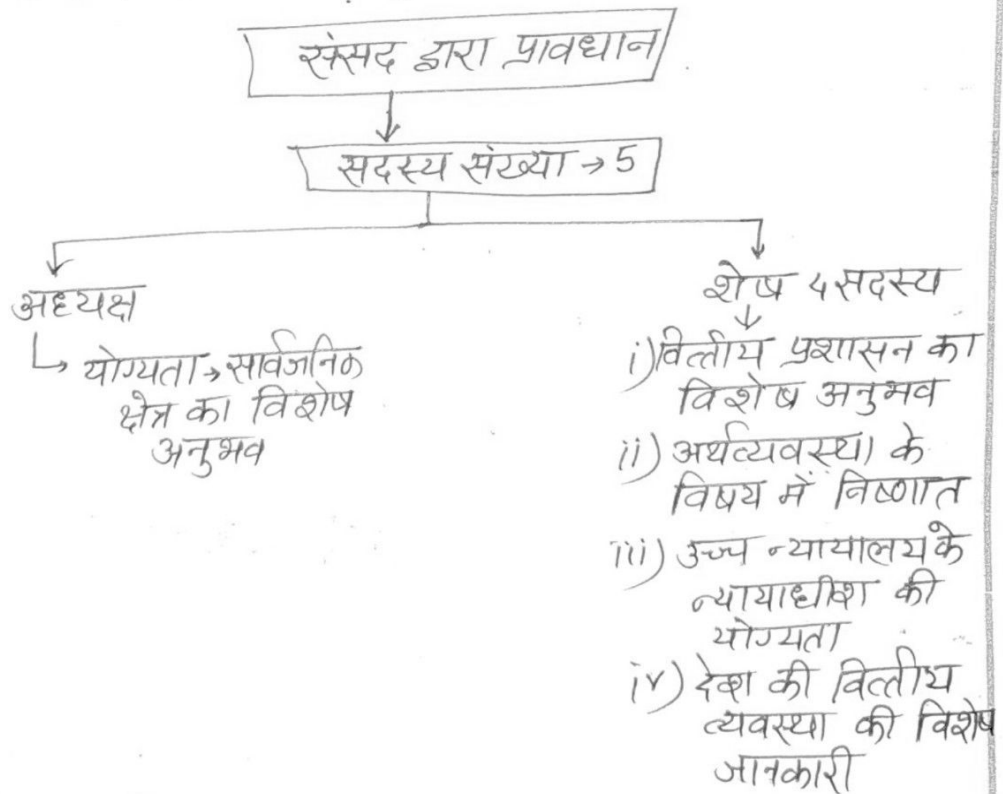 संसद द्वारा प्रावधान
सदस्य संख्या → 5
अध्यक्ष
योग्यता → सार्वजनिक
क्षेत्र का विशेष
अनुभव
शेष 4 सदस्य
i) वित्तीय प्रशासन का
विशेष अनुभव
ii) अर्थव्यवस्था के
विषय में निष्णात
iii) उच्च न्यायालय के
न्यायाधीश की
योग्यता
iv) देश की वित्तीय
व्यवस्था की विशेष
जानकारी